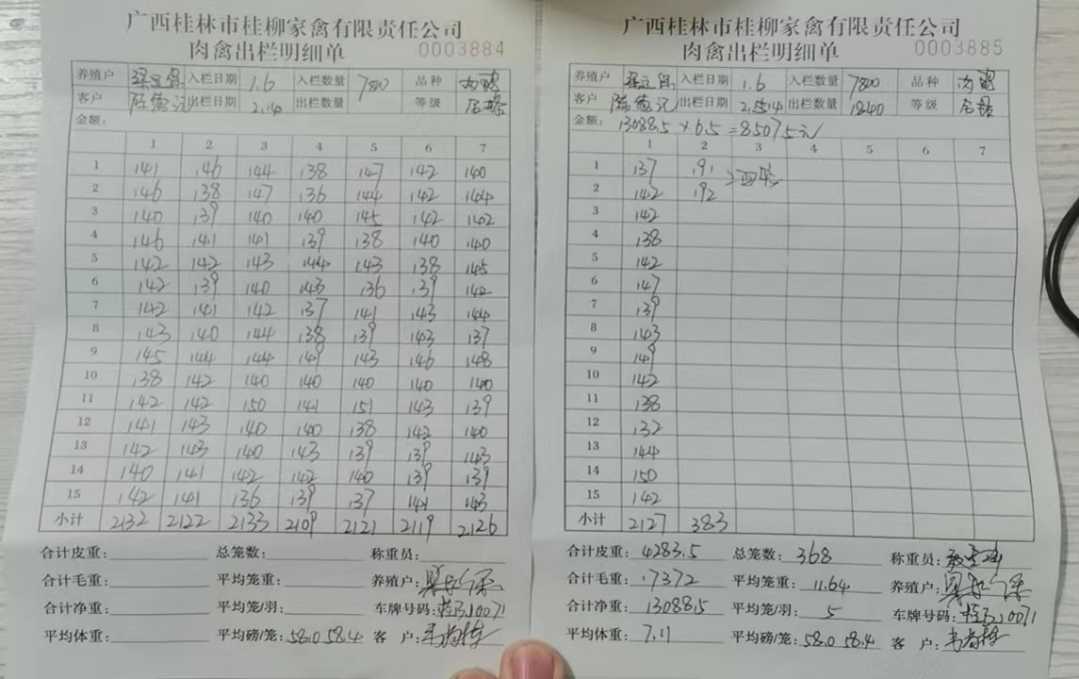 广西桂林市桂柳家禽有限责任公司
肉禽出栏明细单 0003884
养殖户 入栏日期 1.6 入栏数量 7800 品种
客户 陈德记 出栏日期 2.14 出栏数量 等级
金额:
1 2 3 4 5 6 7
1 141 146 144 138 147 142 140
2 146 138 147 136 144 142 144
3 140 139 140 140 145 142 142
4 146 141 141 139 138 140 140
5 142 142 143 144 143 138 145
6 142 139 140 143 136 139 142
7 142 141 142 137 141 143 144
8 143 140 144 138 139 143 137
9 145 144 144 149 143 146 148
10 138 142 140 140 140 140 140
11 142 142 150 141 151 143 139
12 141 143 140 140 138 142 140
13 142 143 140 143 139 139 143
14 140 141 142 142 140 139 139
15 142 141 136 139 137 141 143
小计 2132 2122 2133 2109 2121 2119 2126
合计皮重: 总笼数: 称重员:
合计毛重: 平均笼重: 养殖户:
合计净重: 平均笼/羽: 车牌号码: 10071
平均体重: 平均磅/笼: 58.0 58.4 客 户:
广西桂林市桂柳家禽有限责任公司
肉禽出栏明细单 0003885
养殖户 入栏日期 1.6 入栏数量 7800 品种
客户 陈德记 出栏日期 出栏数量 1840 等级
金额: 13088.5×6.5=85075元
1 2 3 4 5 6 7
1 137 191
2 142 192
3 142
4 138
5 142
6 147
7 139
8 143
9 149
10 142
11 138
12 132
13 144
14 150
15 142
小计 2127 383
合计皮重: 4283.5 总笼数: 368 称重员:
合计毛重: 17372 平均笼重: 11.64 养殖户:
合计净重: 13088.5 平均笼/羽: 5 车牌号码: 10071
平均体重: 7.11 平均磅/笼: 58.0 58.4 客 户: